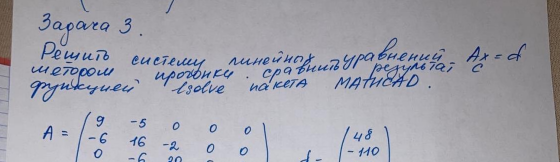 Задача 3.
Решить систему линейных уравнений Ax = d
методом прогонки. сравнить результат с
функцией lsolve пакета MATHCAD.
A = ( 9 -5 0 0 0
-6 16 -2 0 0
0 -6 20
d = ( 48
-110